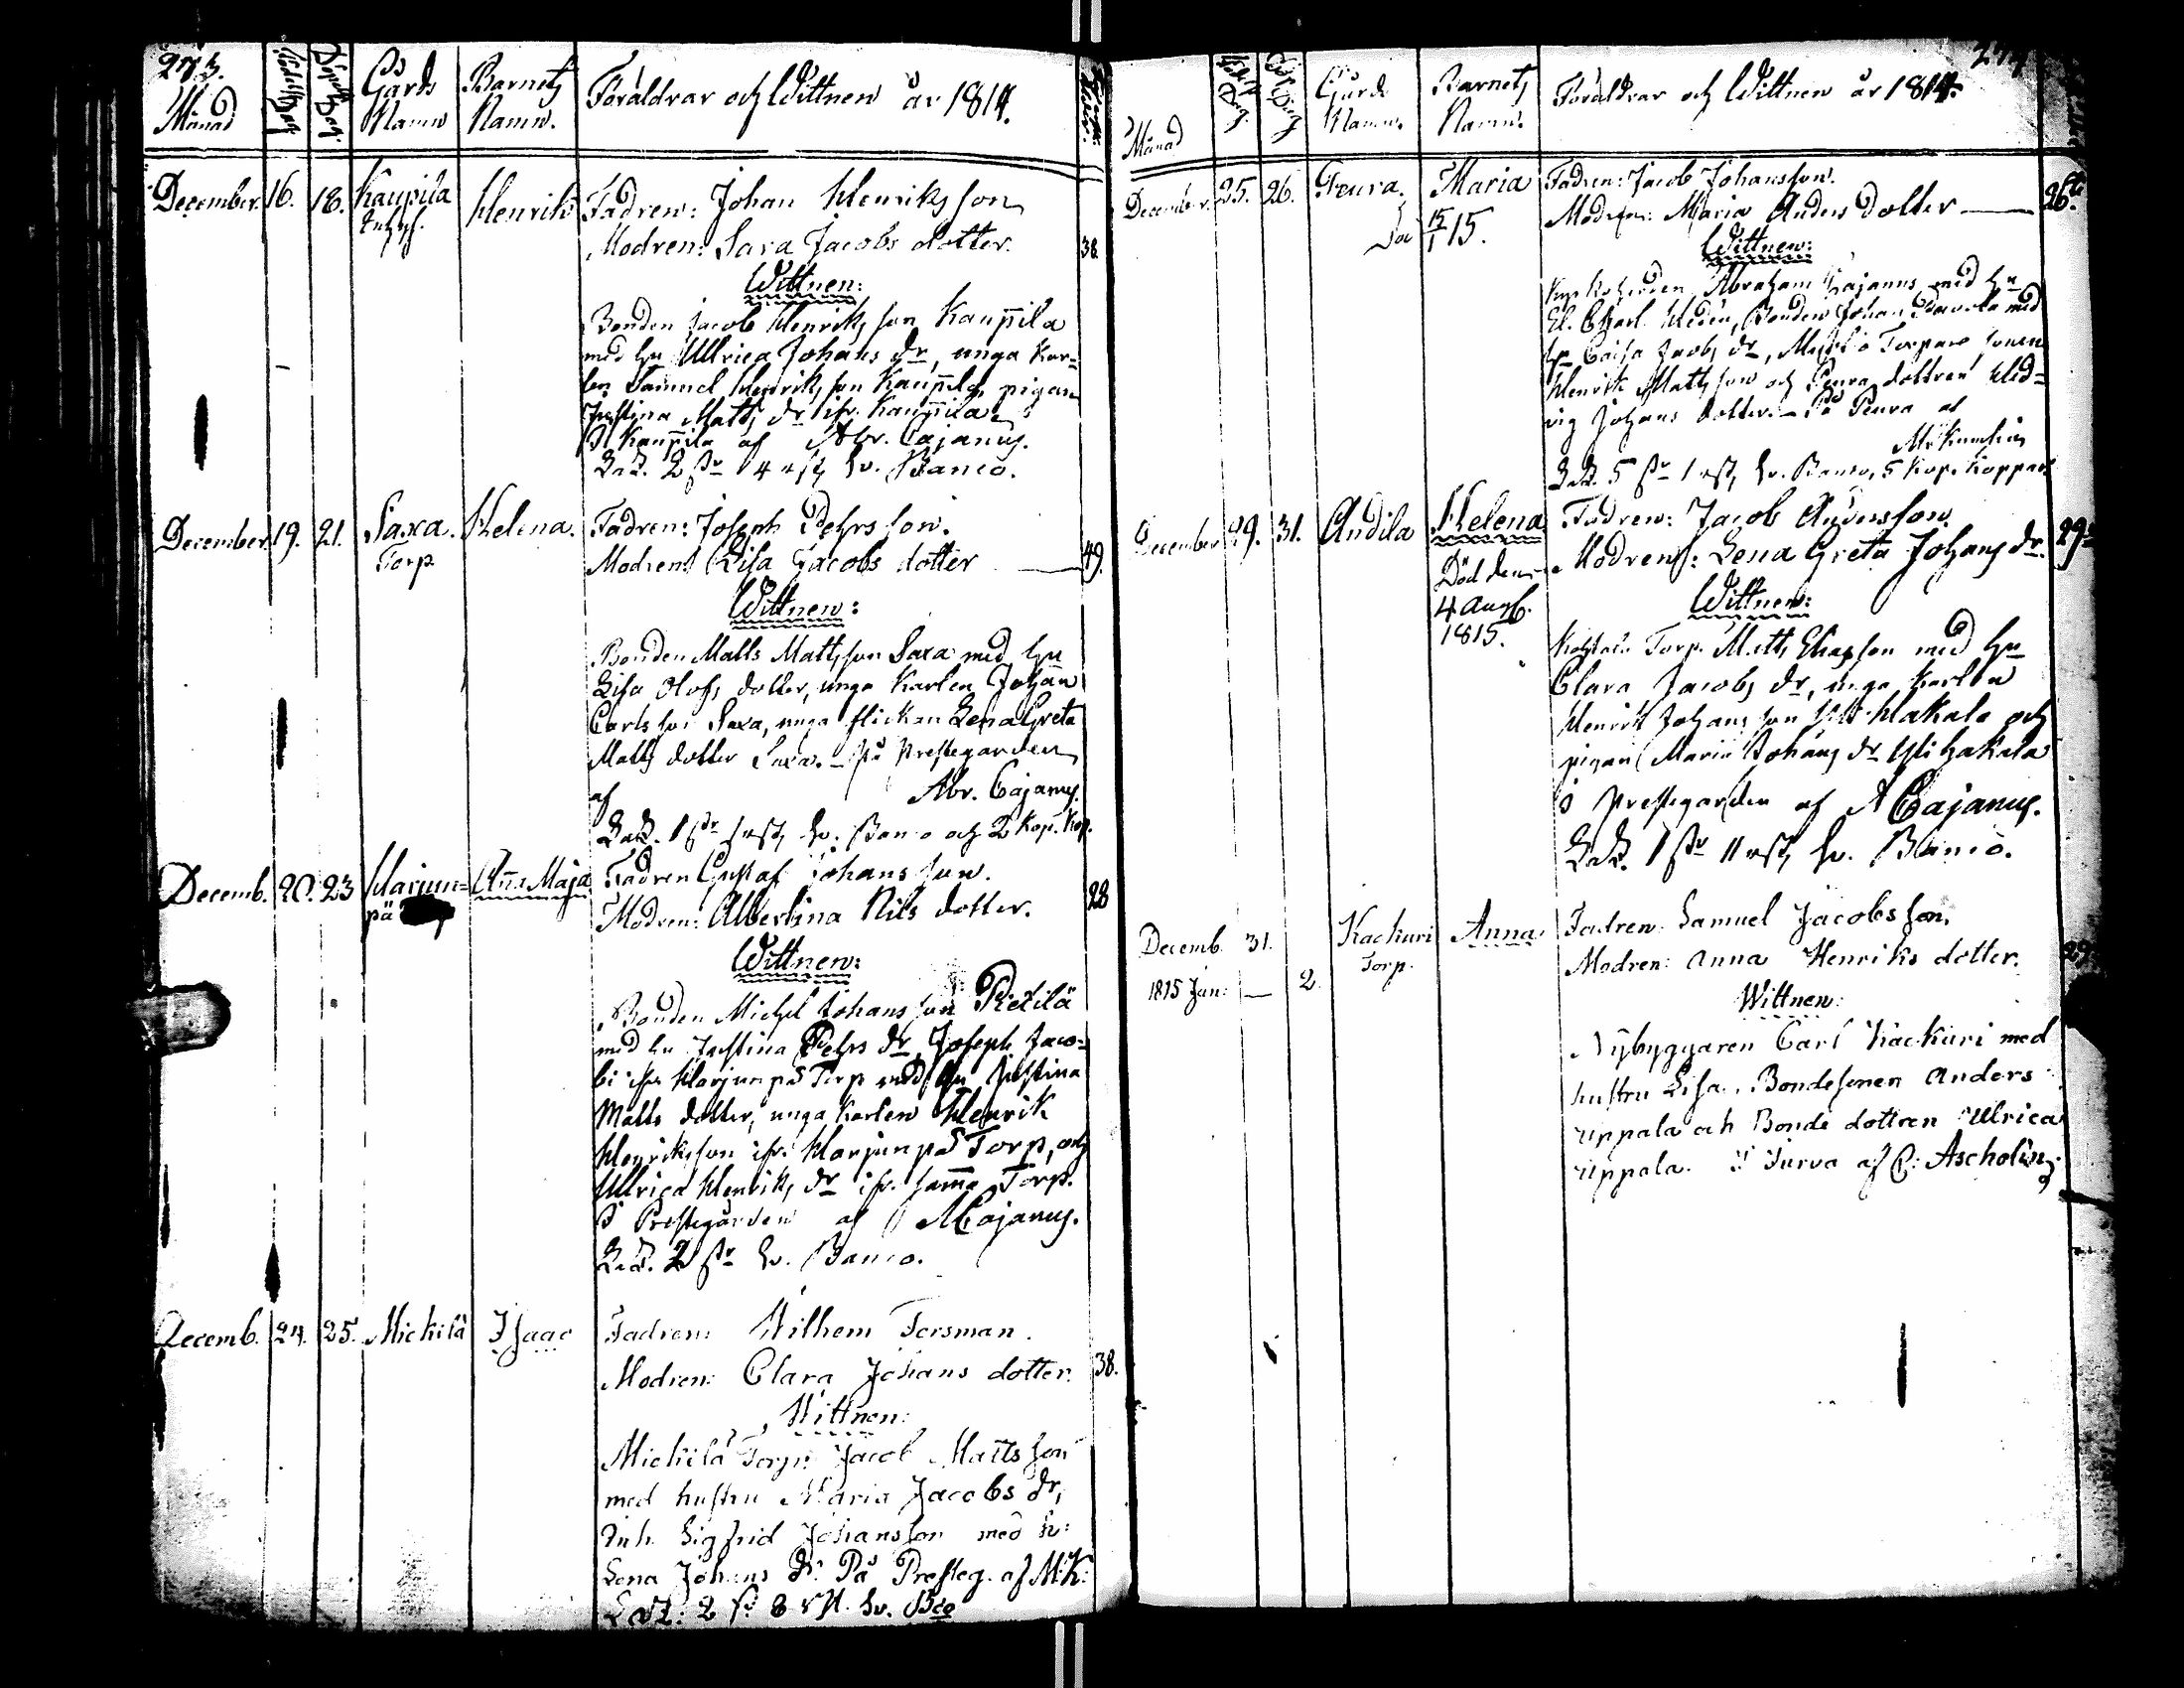 273.
Månad
Födelse Dag.
Döpelse Dag.
Gårds Namn
Barnets Namn.
Föräldrar och Wittnen år 1814.
December. 16. 18. Kaupila Inhys. Henrik
Fadren: Johan Henriksson
Modren: Sara Jacobs dotter. 38.
Wittnen:
Bonden Jacob Henriksson Kaupila
med hu Ulrica Johans dr, unga Kar=
len Samuel Henriksson Kaupila, pigan
Justina Matts dr ifr. Kaupila.
I Kaupila af Abr. Cajanus.
2 sk 4 rst. sv. Banco.
December 19. 21. Saxa. Torp Helena.
Fadren: Joseph Pehrsson.
Modren: Lisa Jacobs dotter 49.
Wittnen:
Bonden Matts Mattsson Saxa med hu
Lisa Olofs dotter, unga Karlen Johan
Carlsson Saxa, unga flickan Lena Greta
Matts dotter Saxa. På Prestegården
af Abr. Cajanus.
1 sk 1 rst, sv. Banco och 2 Kop. Kop.
Decemb. 20. 23 Harjun=
pä Anna Maja
Fadren Gustaf Johansson.
Modren: Albertina Nils dotter. 28
Wittnen:
Bonden Michel Johansson Pietilä
med hu Justina Pehrs dr, Joseph Jaco=
bi ifr Harjunpä Torp med hu Justina
Matts dotter, unga Karlen Henrik
Henriksson ifr. Harjunpä Torp, och
Ulrica Henriks dr ifr. samma Torp.
I Prestegården af A Cajanus.
2 sk sv. Banco.
Decemb. 24. 25. Mickilä Isaac
Fadren: Wilhem Forsman.
Modren: Clara Johans dotter. 38.
Wittnen:
Mickilä Torp: Jacob Mattsson
med hustru Maria Jacobs dr,
Inh. Sigfrid Johansson med h:
Lena Johans dr. På Presteg. af M:K:
2 s: 8 rst. sv. Bco
Månad
Födelse Dag.
Gårds Namn.
Barnets Namn.
Föräldrar och Wittnen år 1814.
December. 25. 26. Peura. Maria
15/1 15.
Fadren: Jacob Johansson.
Modren: Maria Anders dotter 26
Wittnen:
Abraham Cajanus med hu
El. Charl. Hedén, Bonden Johan med
hu Caisa Jacobs dr, Torpare sonen
Henrik Mattsson och Peura dottren Hed=
vig Johans dotter. På Peura af
5 sk 1 rst, sv. Banco, 5 Kop. Koppar
December 29. 31. Andila Helena
Död den
4 Aug.
1815.
Fadren: Jacob Andersson.
Modren: Lena Greta Johans dr. 29
Wittnen:
Torp. Matts Eliasson med hu
Clara Jacobs dr, unga Karlen
Henrik Johansson Yli Hakala och
pigan Maria Johans dr Yli Hakala
I Prestegården af A Cajanus.
1 sk 11 rst, sv. Banco.
Decemb. 31. Kackuri Torp. Anna
1815 Jan: — 2.
Fadren: Samuel Jacobsson.
Modren: Anna Henriks dotter. 29
Wittnen:
Nybyggaren Carl Kackuri med
hustru Lisa. Bondesonen Anders
Uppala och Bonde dottren Ulrica
Uppala. I Jurva af C: Ascholin.